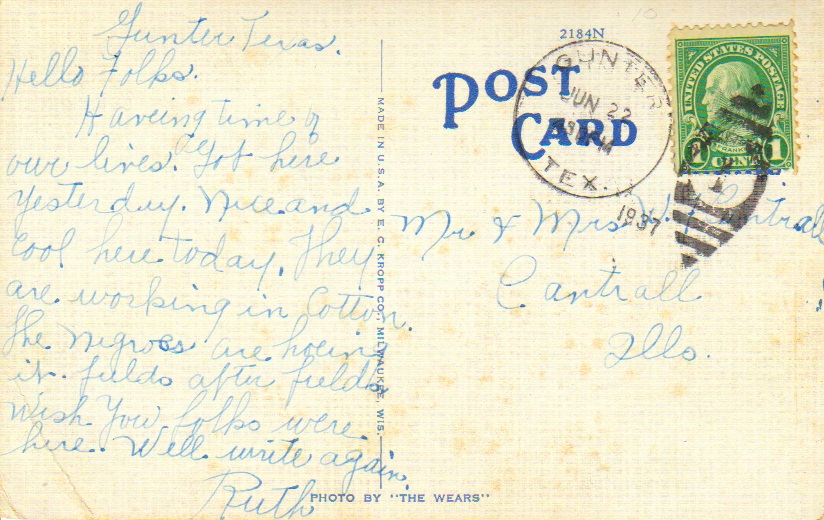 Gunter Texas.
Hello Folks.
Having time of
our lives. Got here
yesterday. Nice and
cool here today. They
are working in Cotton.
The Negroes are hoeing
it. fields after fields
Wish you folks were
here. Well write again.
Ruth
MADE IN U.S.A. BY E. C. KROPP CO., MILWAUKEE, WIS.
PHOTO BY "THE WEARS"
2184N
POST
CARD
GUNTER
JUN 22
TEX.
1937
UNITED STATES POSTAGE
FRANKLIN
1 CENT 1
Mr & Mrs. Cantrall
Cantrall
Ills.